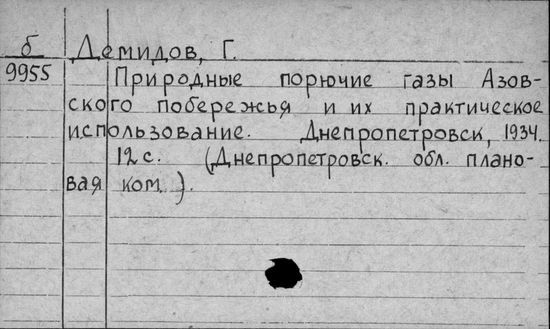 б Демидов, Г.
9955 Природные порючие газы Азов-
ского побережья и их практическое
использование. Днепропетровск, 1934.
12 с. (Днепропетровск. обл. плано-
вая ком.).